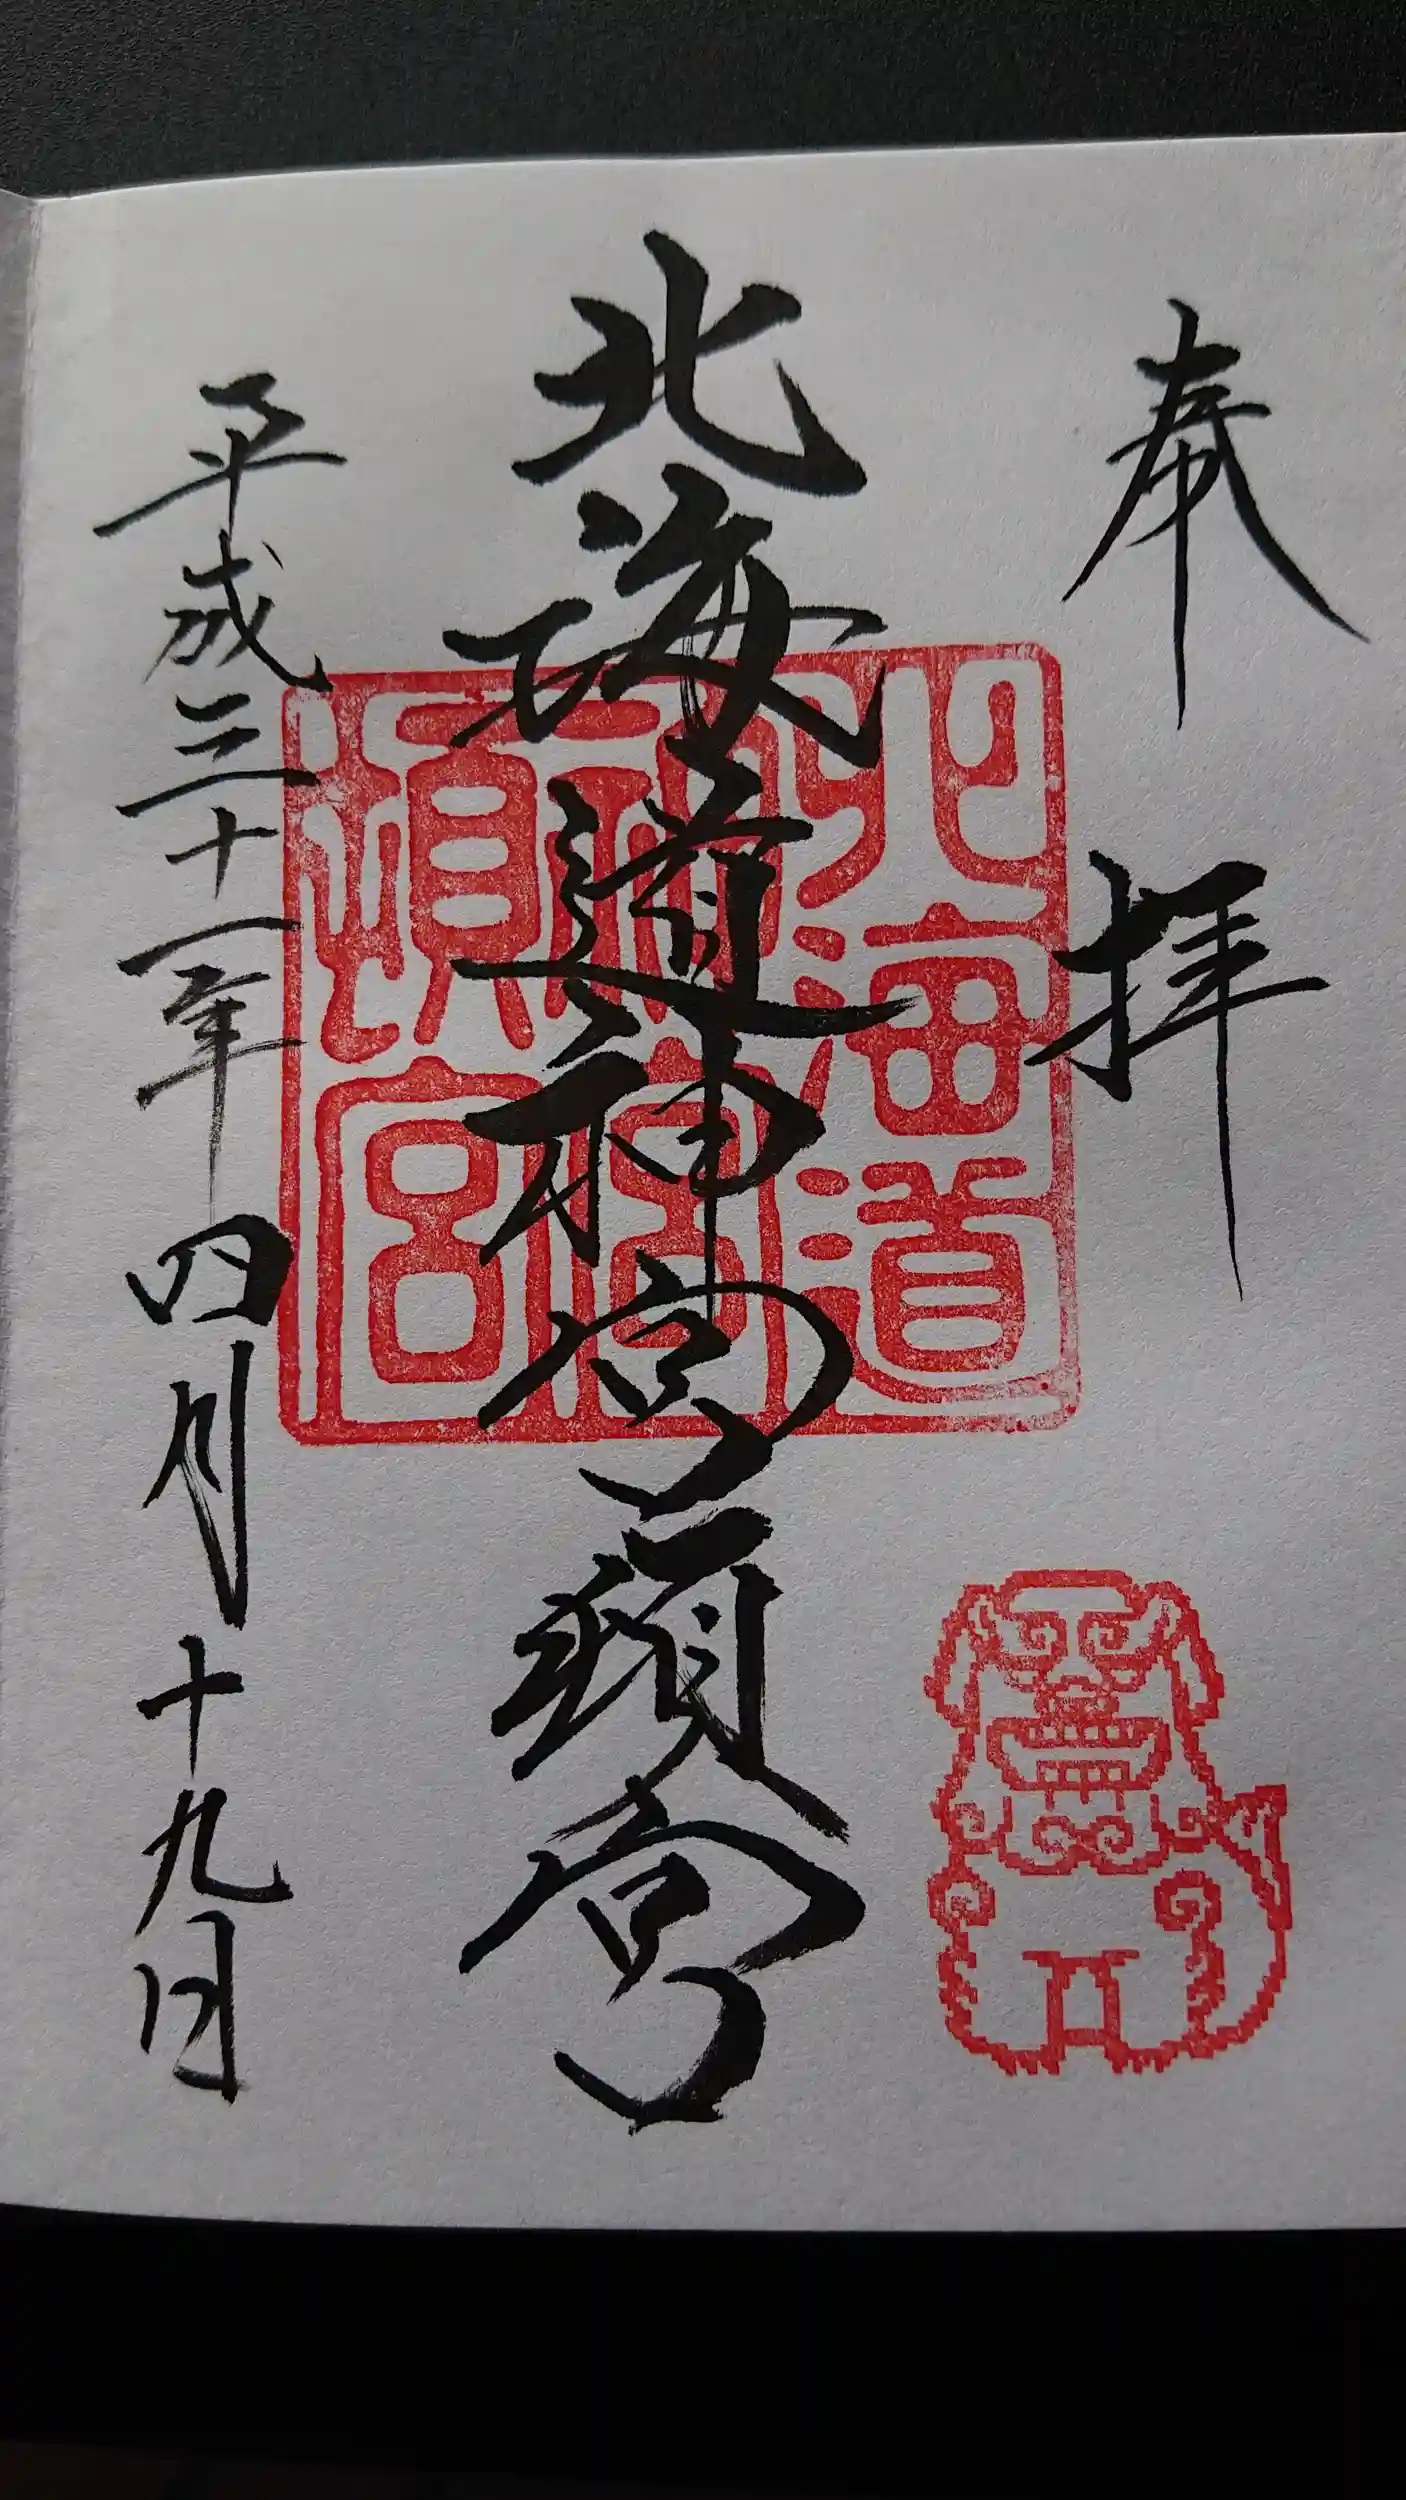 奉拝
北海道神宮頓宮
北海道
神宮
頓宮
平成三十一年四月十九日